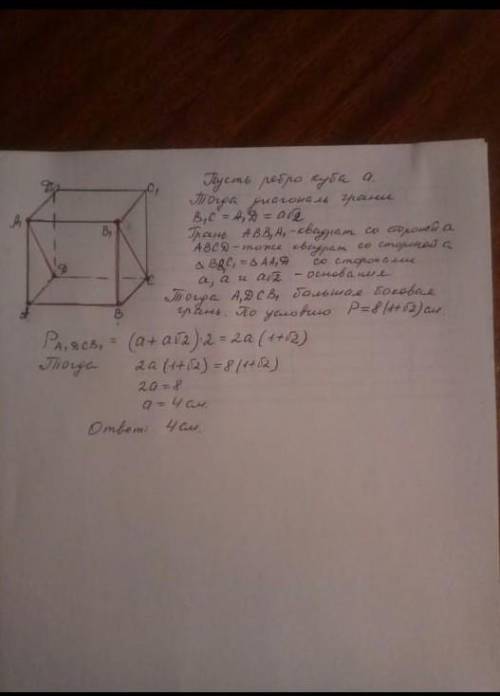 Пусть ребро куба a.
Тогда диагональ грани
B₁C = A₁D = a√2
Грань ABB₁A₁ - квадрат со стороной a
ABCD - тоже квадрат со стороной a
со сторонами
a, a и a√2 - основания
Тогда A₁DCB₁ большая боковая
грань. По условию P = 8(1+√2) см.
P A₁DCB₁ = (a + a√2)·2 = 2a(1+√2)
Тогда 2a(1+√2) = 8(1+√2)
2a = 8
a = 4 см.
Ответ: 4 см.
D₁ C₁
A₁ B₁
D C
A B